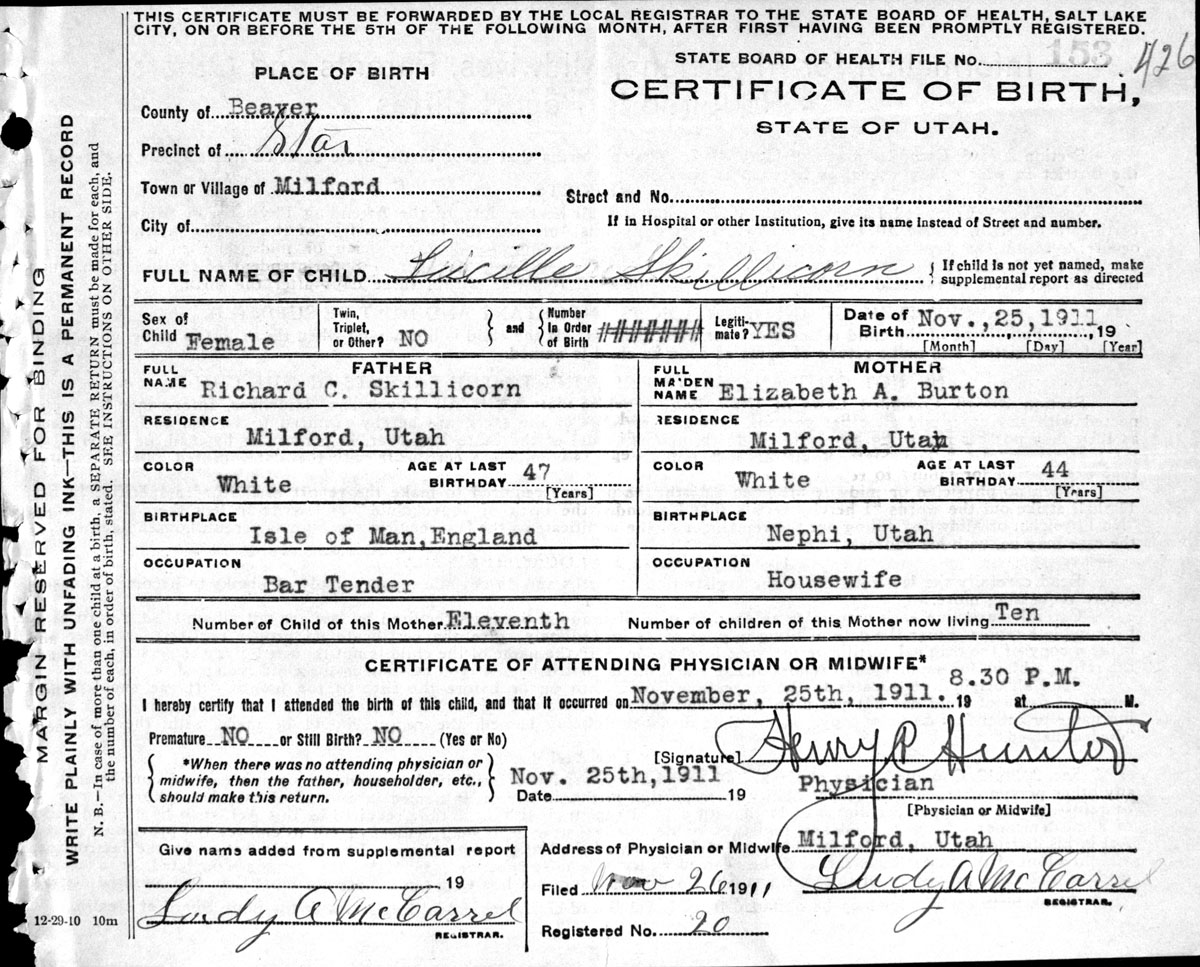 THIS CERTIFICATE MUST BE FORWARDED BY THE LOCAL REGISTRAR TO THE STATE BOARD OF HEALTH, SALT LAKE
CITY, ON OR BEFORE THE 5TH OF THE FOLLOWING MONTH, AFTER FIRST HAVING BEEN PROMPTLY REGISTERED.
STATE BOARD OF HEALTH FILE No. 153 426
PLACE OF BIRTH
CERTIFICATE OF BIRTH,
STATE OF UTAH.
County of Beaver
Precinct of Star
Town or Village of Milford
Street and No.
City of
If in Hospital or other Institution, give its name instead of Street and number.
FULL NAME OF CHILD Lucille Skillicorn { If child is not yet named, make
supplemental report as directed
Sex of
Child Female
Twin,
Triplet,
or Other? NO } and { Number
In Order
of Birth #######
Legiti-
mate? YES
Date of
Birth Nov., 25, 1911 19
[Month] [Day] [Year]
FATHER
FULL
NAME Richard C. Skillicorn
MOTHER
FULL
MAIDEN
NAME Elizabeth A. Burton
RESIDENCE
Milford, Utah
RESIDENCE
Milford, Utah
COLOR
White
AGE AT LAST
BIRTHDAY 47
[Years]
COLOR
White
AGE AT LAST
BIRTHDAY 44
[Years]
BIRTHPLACE
Isle of Man, England
BIRTHPLACE
Nephi, Utah
OCCUPATION
Bar Tender
OCCUPATION
Housewife
Number of Child of this Mother Eleventh Number of children of this Mother now living Ten
CERTIFICATE OF ATTENDING PHYSICIAN OR MIDWIFE*
I hereby certify that I attended the birth of this child, and that it occurred on November, 25th, 1911. 19 at 8.30 P.M. M.
Premature NO or Still Birth? NO (Yes or No)
[Signature] Henry P Hunter
{ *When there was no attending physician or
midwife, then the father, householder, etc.,
should make this return. }
Nov. 25th, 1911
Date 19
Physician
[Physician or Midwife]
Give name added from supplemental report
19
Ludy A McCarrel
REGISTRAR.
Address of Physician or Midwife Milford, Utah
Filed Nov 26 1911 Ludy A McCarrel
REGISTRAR.
Registered No. 20
12-29-10 10m
MARGIN RESERVED FOR BINDING
WRITE PLAINLY WITH UNFADING INK—THIS IS A PERMANENT RECORD
N. B.—In case of more than one child at a birth, a SEPARATE RETURN must be made for each, and
the number of each, in order of birth, stated. SEE INSTRUCTIONS ON OTHER SIDE.